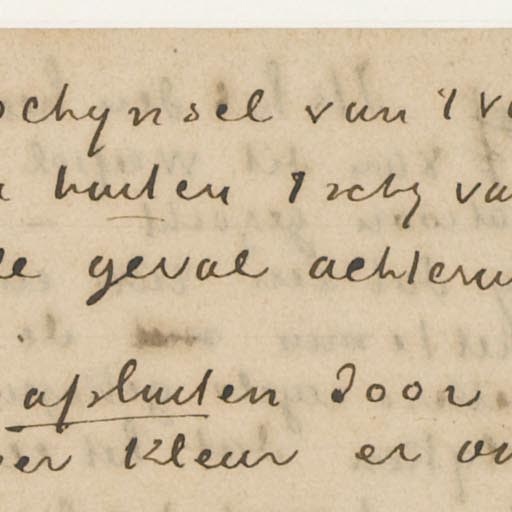 schynsel van 't va
buiten 't schy va
de geval achteru
afsluiten door
er kleur er on